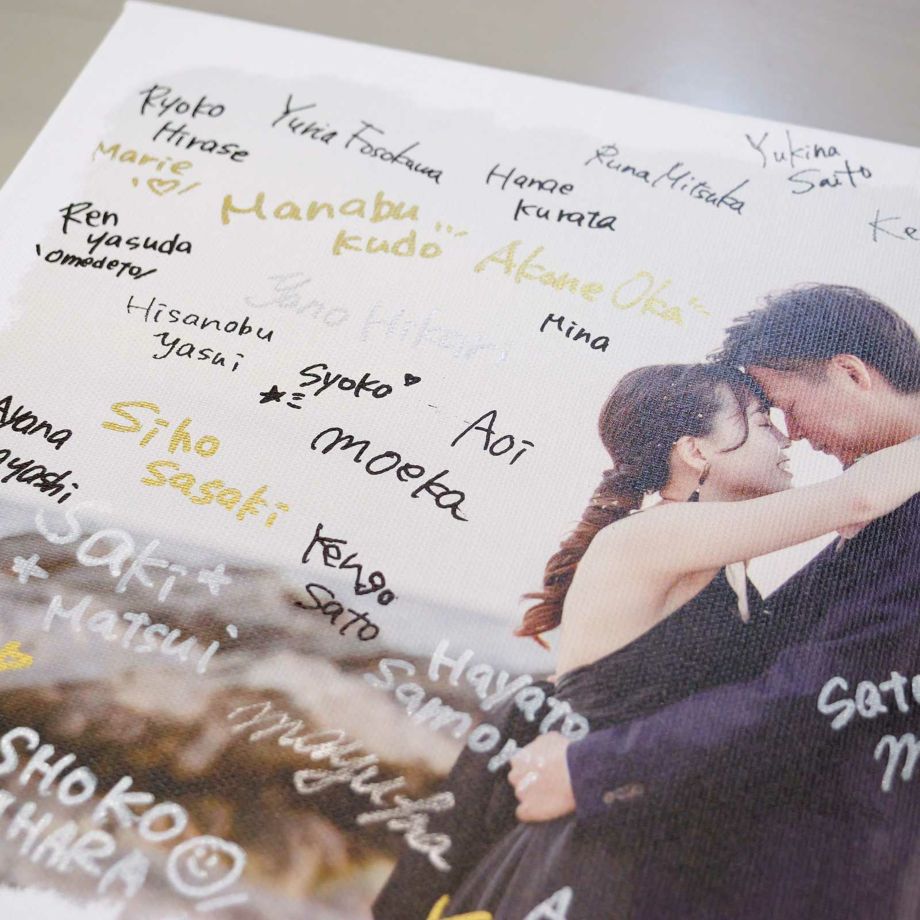 Ryoko
Hirase
Yuria Fosokawa
Hanae
Kurata
Runa Mitsuka
Yukina
Saito
Ke
Marie
Manabu
Kudo
Akane Oka
Ren
Yasuda
\omedeto/
Yano Hikari
Mina
Hisanobu
Yasui
Syoko
Aoi
moeka
Ayana
Siho
Sasaki
Saki
Matsui
Kengo
Sato
Hayato
Samori
mayuka
SHOKO
IHARA
Sato
M
A